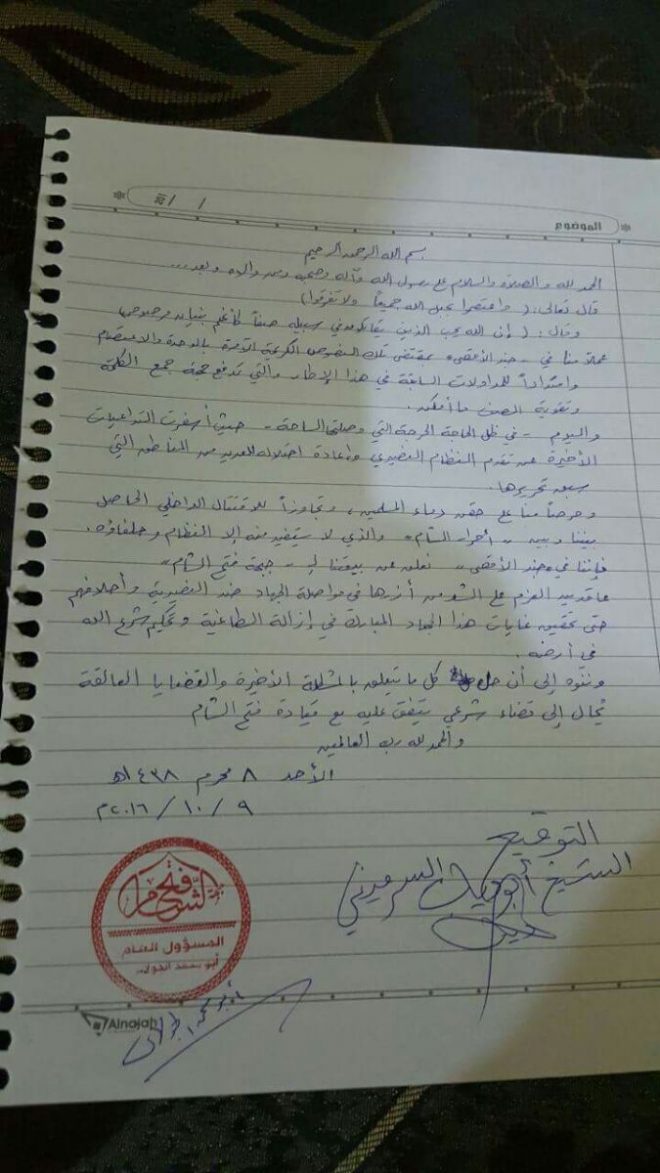 الموضوع
/ /
بسم الله الرحمن الرحيم
الحمد لله والصلاة والسلام على رسول الله وآله وصحبه ومن والاه وبعد ...
قال تعالى: (واعتصموا بحبل الله جميعاً ولا تفرقوا)
وقال: (إن الله يحب الذين يقاتلون في سبيله صفاً كأنهم بنيان مرصوص)
عملاً منا في - جند الأقصى - بمقتضى تلك النصوص الكريمة الآمرة بالوحدة والاعتصام
وامتداداً للمداولات السابقة في هذا الإطار والتي تدفع جهة جمع الكلمة
وتقوية الصف ما أمكن.
واليوم - في ظل الحالة الحرجة التي وصلتها الساحة - حيث أسفرت التداعيات
الأخيرة عن تقدم النظام النصيري وإعادة احتلاله للعديد من المناطق التي
سبق تحريرها.
وحرصاً منا على حقن دماء المسلمين، وتجاوزاً للاقتتال الداخلي الحاصل
بيننا وبين - أحرار الشام - والذي لا يستفيد منه إلا النظام وحلفاؤه.
فإننا في - جند الأقصى - نعلن عن بيعتنا لـ - جبهة فتح الشام -
عاقدين العزم على الشد من أزرها في مواصلة الجهاد ضد النصيرية وأحلافهم
حتى تحقيق غايات هذا الجهاد المبارك في إزالة الطاغية وتحكيم شرع الله
في أرضه.
وننوه إلى أن حل كل ما يتعلق بالمشكلة الأخيرة والقضايا العالقة
يُحال إلى قضاء شرعي يتفق عليه مع قيادة فتح الشام
والحمد لله رب العالمين
الأحد ٨ محرم ١٤٣٨هـ
٩ / ١٠ / ٢٠١٦م
التوقيع
الشيخ أبو دياب السرميني
فتح الشام
المسؤول العام
أبو محمد الجولاني
Alnajah
أبو محمد الجولاني